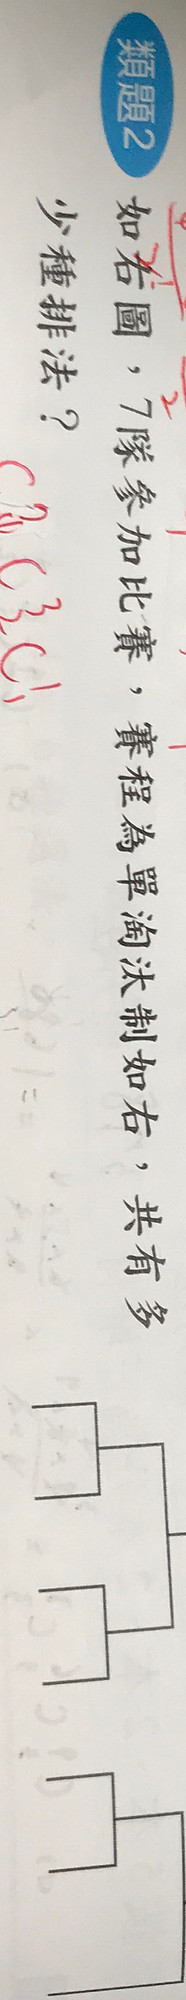 類題2 如右圖，7隊參加比賽，賽程為單淘汰制如右，共有多
少種排法？